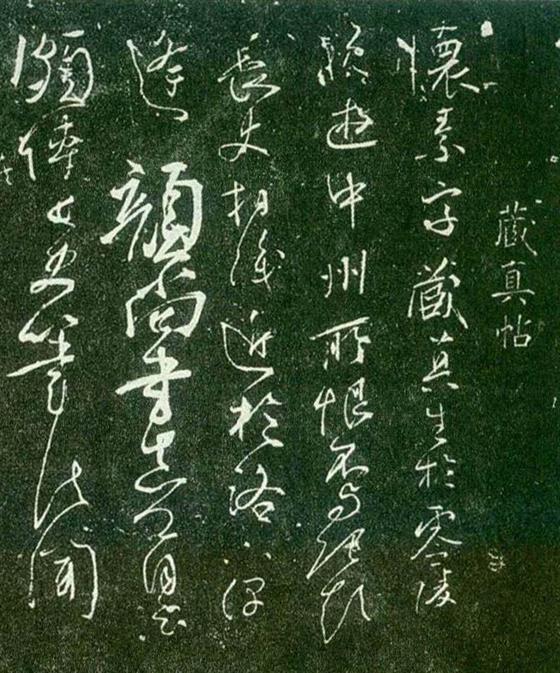 藏真帖
懷素字藏真生於零陵
晚遊中州所恨不與張顛
長史相識近於洛下偶
逢顏尚書真卿自云
頗傳長史筆法聞